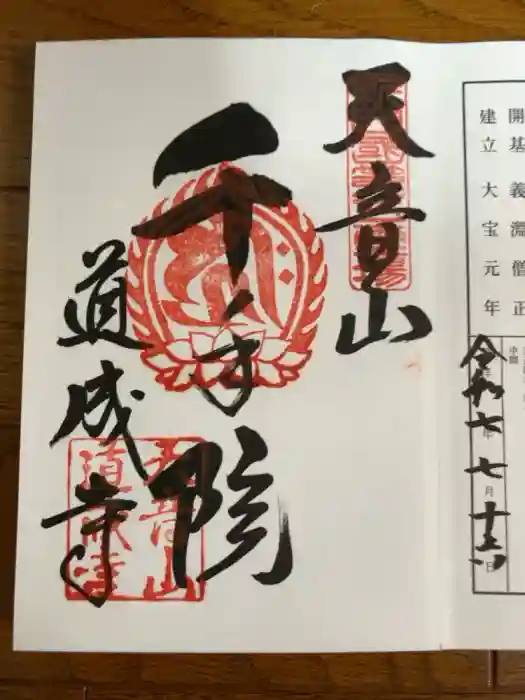 開基 義淵僧正
建立 大宝元年
令和七年七月十三日
天音山
千手院
道成寺
天音山
道成寺